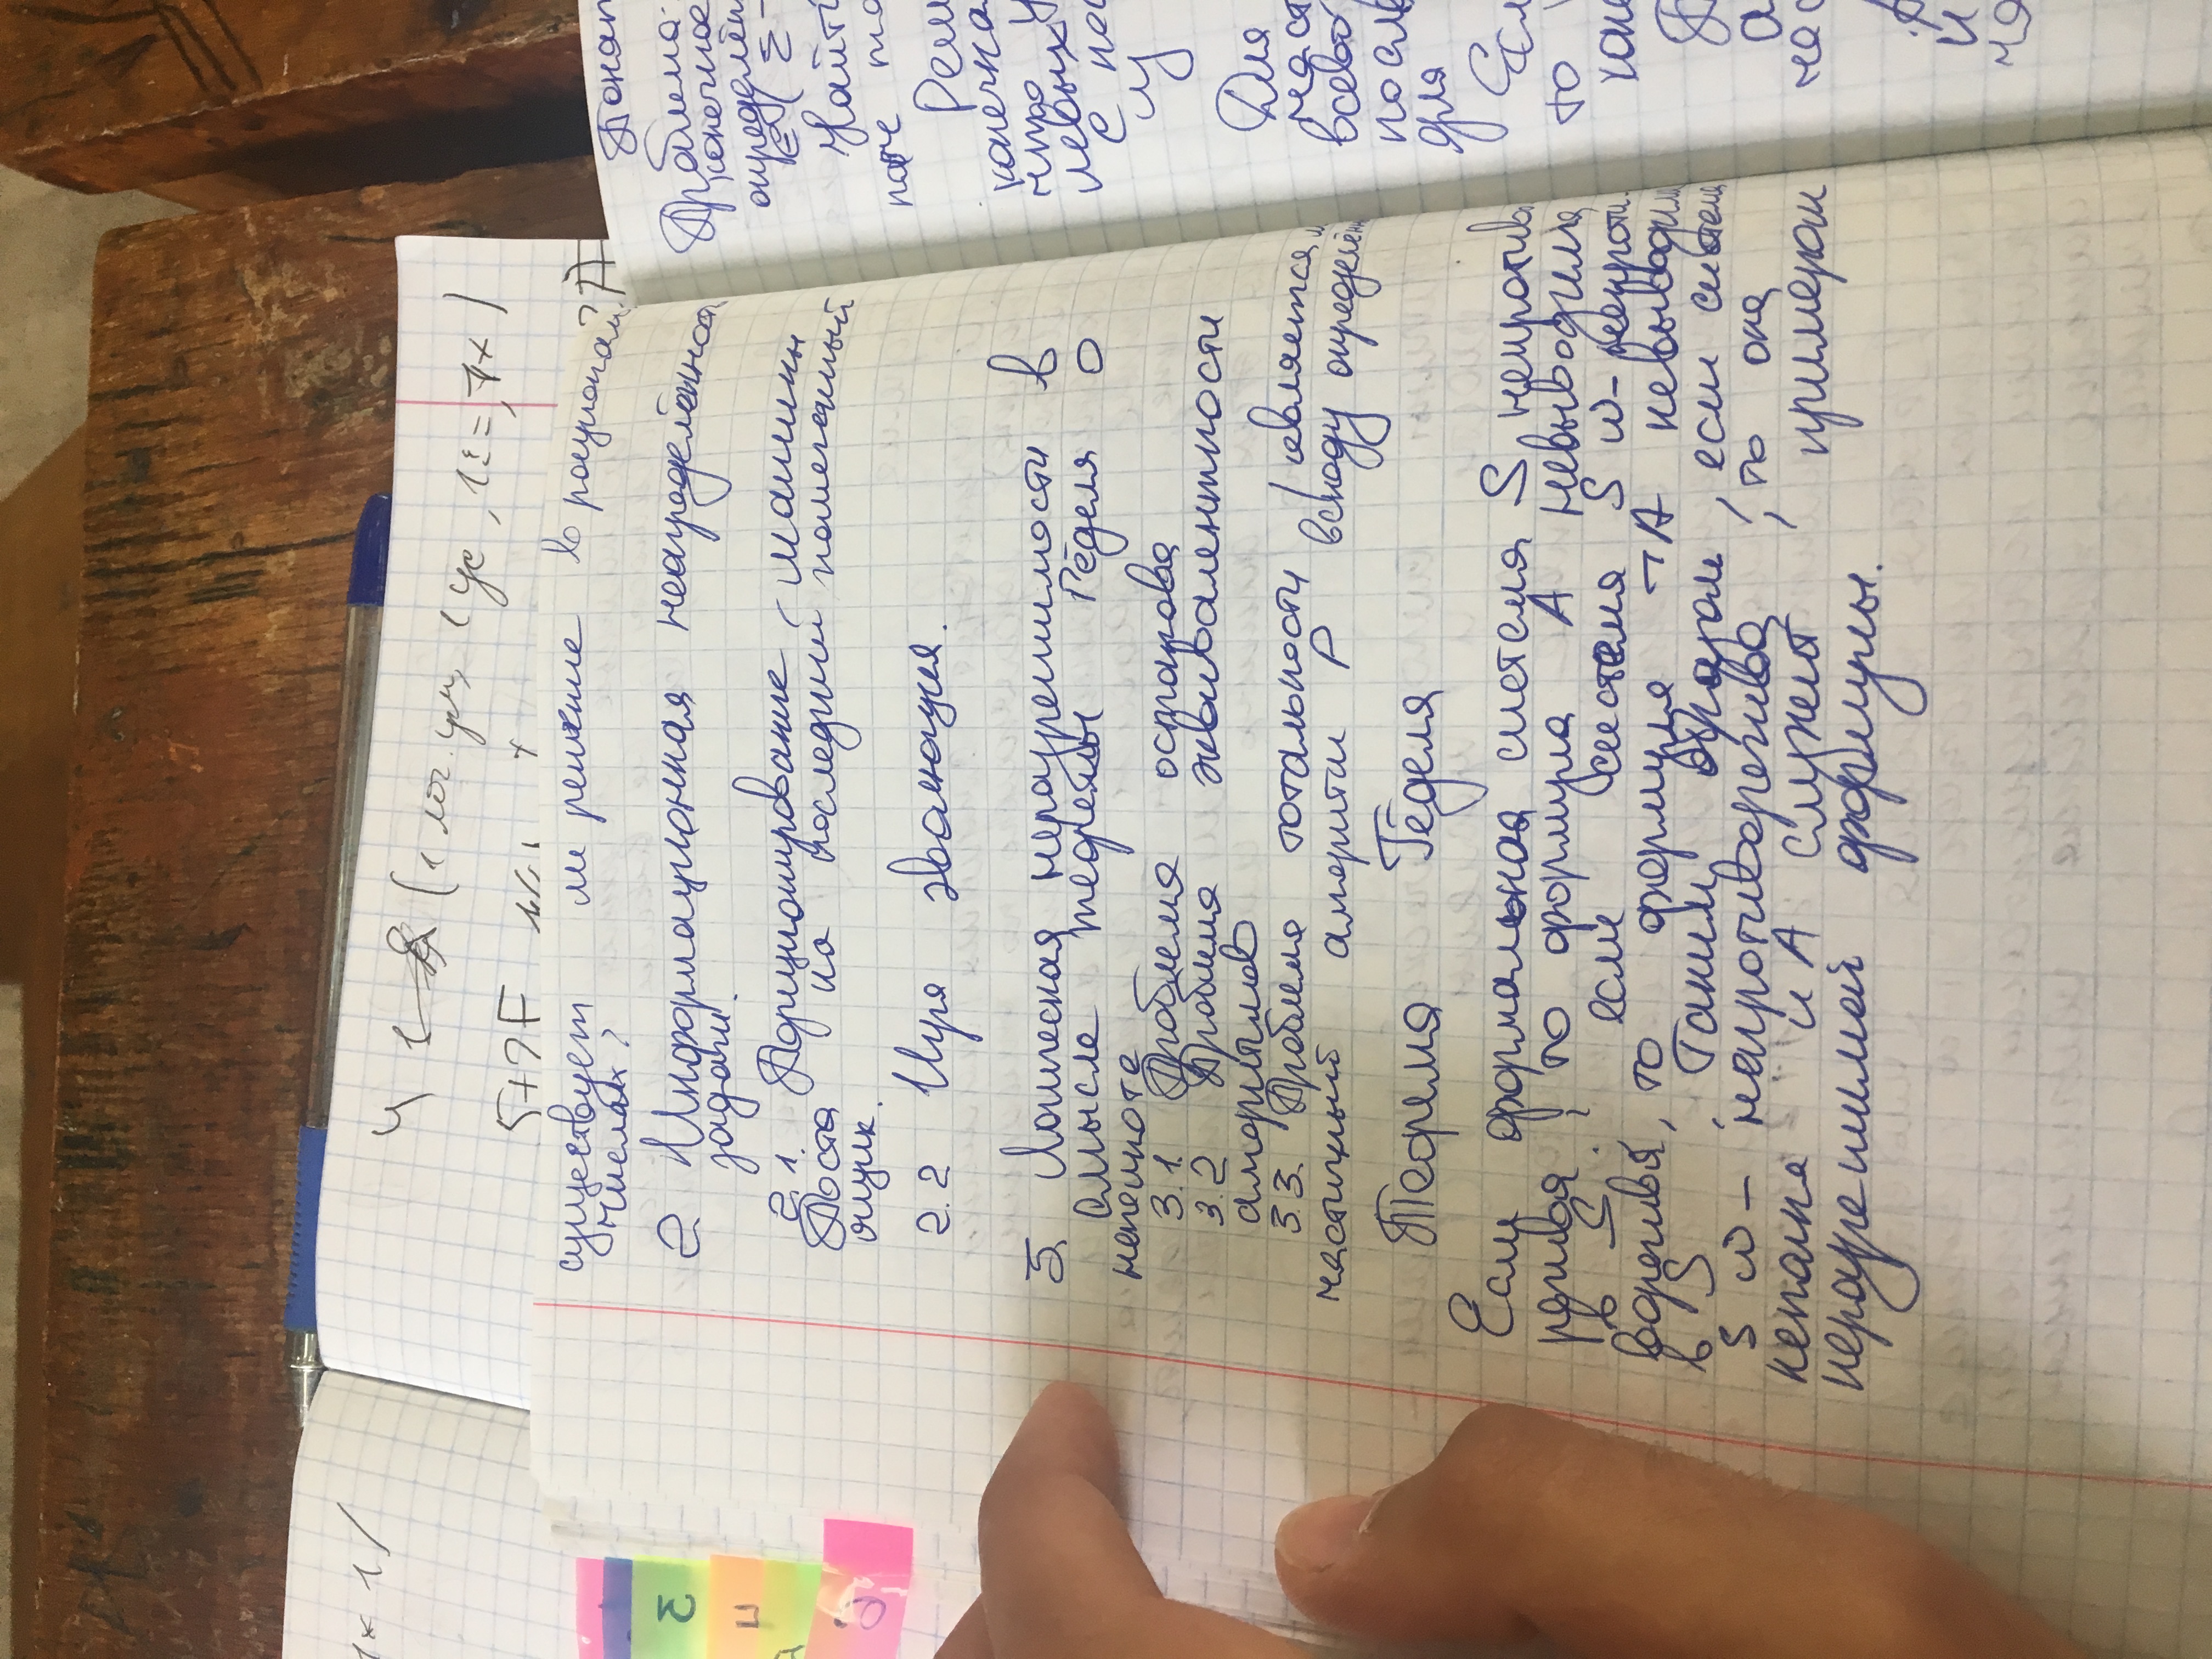 1x 1/
4 1 (1 лог. ум, 1 ус, 1:=, 7x)
5+2F
существует ли решение в рационал.
числах?
2 Информационная неопределённость
задачи.
2.1. Позиционирование машины
Поста на последний помеченный
ящик.
2.2 Игра эволюция.
3. Логическая неразрешимости в
смысле теоремы Гёделя о
неполноте
3.1. Проблема останова
3.2 Проблема эквивалентности
алгоритмов
3.3. Проблема тотальности / является
частичный алгоритм P всюду определённ
Теорема Гёделя
Если формальная система S непротиво
речивая, то формула A невыводима
в S; если система S ω- непроти-
воречива, то формула ¬A невыводима
в S. Таким образом, если система
S ω- непротиворечива, то она
неполна и A служит примером
неразрешимой формулы.
Понят
Проблема-
конечное
определён
∈ ( Σ
Найти
Реш
конечная
что у
левых
с пос
Для
част
всево
после
для
Есл
то
кон
П
а
час
и
ча
3